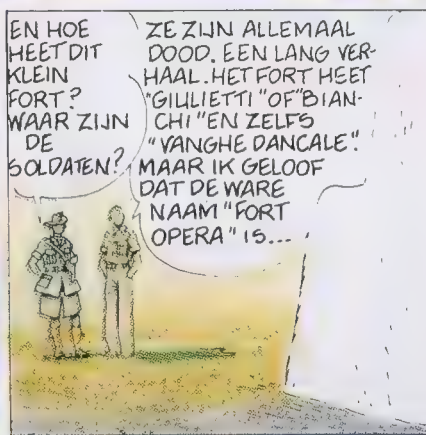 EN HOE
HEET DIT
KLEIN
FORT?
WAAR ZIJN
DE
SOLDATEN?
ZE ZIJN ALLEMAAL
DOOD. EEN LANG VER-
HAAL. HET FORT HEET
"GIULIETTI" OF "BIAN-
CHI" EN ZELFS
"VANGHE DANCALE".
MAAR IK GELOOF
DAT DE WARE
NAAM "FORT
OPERA" IS...